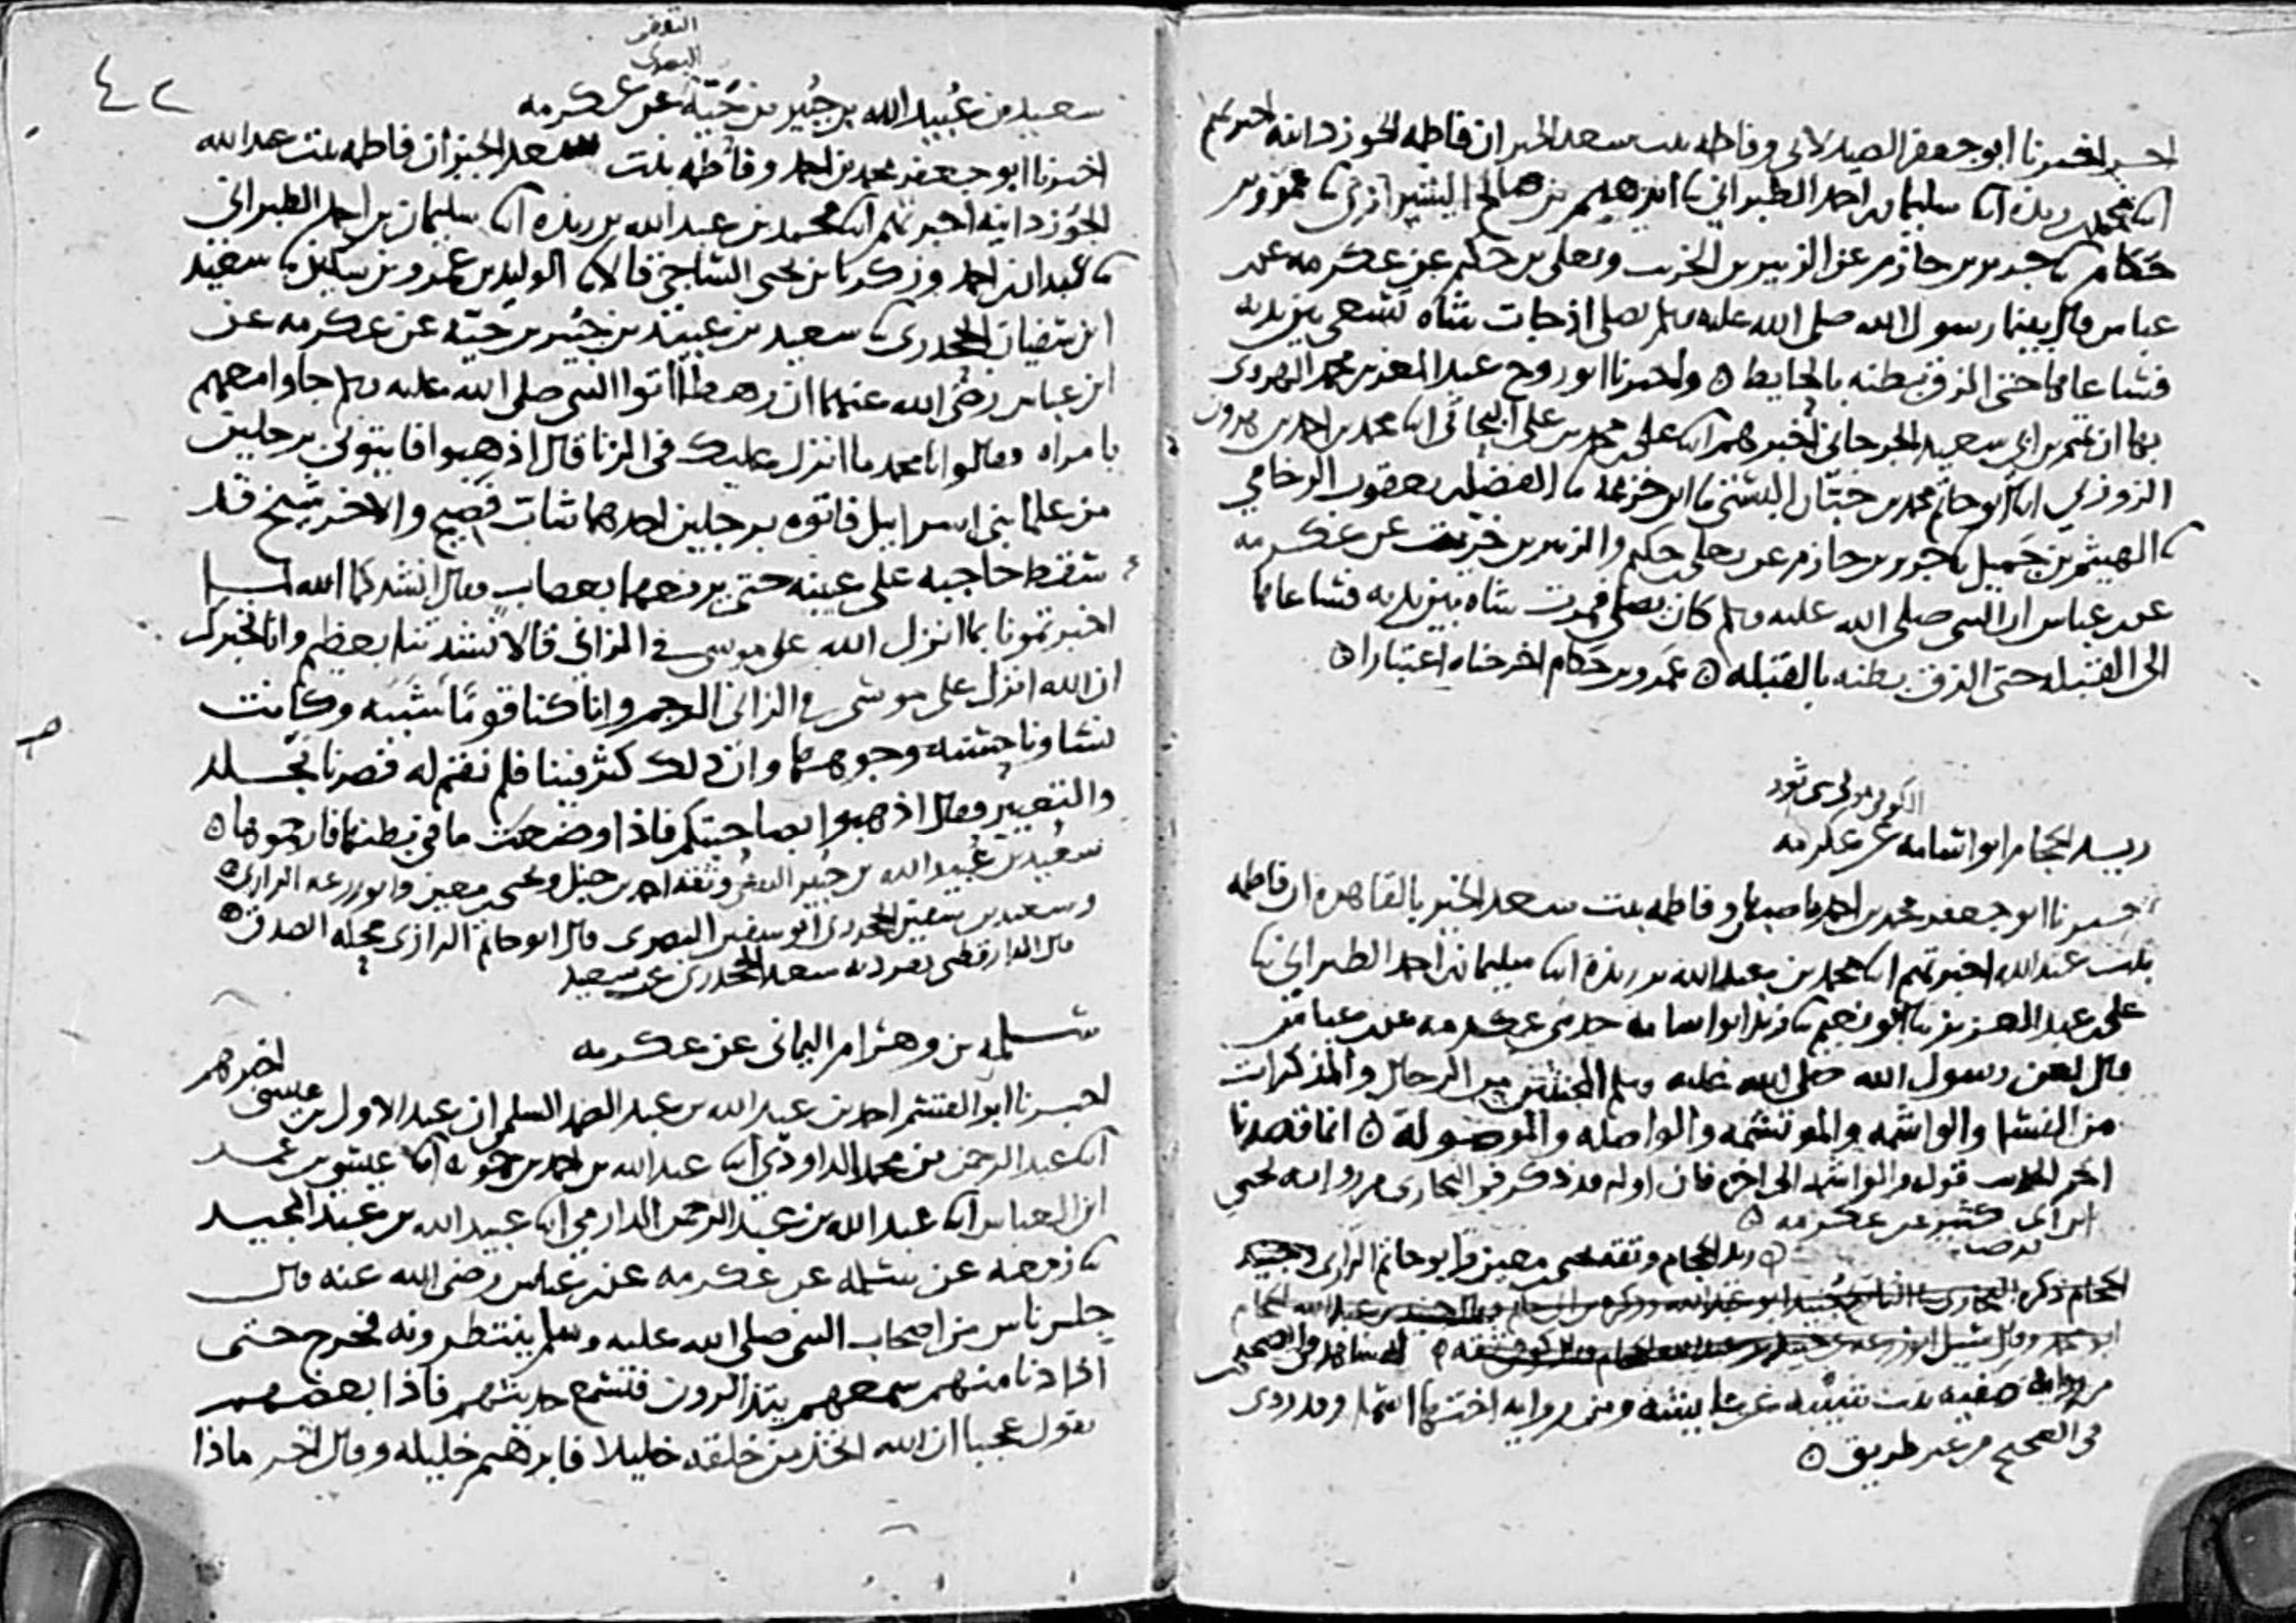 اخبرنا ابو جعفر الصيدلاني وفاطمه بنت سعد الخير ان فاطمه الجوزدانيه اخبرتهم
انا محمد بن ريذه انا سليمان بن احمد الطبراني نا ابرهيم بن صالح الشيرازي نا عمرو بن
حكام نا جرير بن حازم عن الزبير بن الخريت ويعلى بن حكيم عن عكرمه عن
عباس قال بينما رسول الله صلى الله عليه وسلم يصلي اذ جات شاه تسعى بين يديه
فساعاها حتى الزق بطنه بالحايط ٥ واخبرنا ابو روح عبد المعز بن محمد الهروي
بها ان تميم بن ابي سعيد الجرجاني اخبرهم انا علي بن محمد بن علي البحاثي انا محمد بن احمد بن هرون
الزوزني انا ابو حاتم محمد بن حبان البستي نا ابن خزيمه نا الفضل بن يعقوب الرخامي
نا الهيثم بن جميل نا جرير بن حازم عن يعلى بن حكيم والزبير بن خريت عن عكرمه
عن عباس ان النبي صلى الله عليه وسلم كان يصلي فمرت شاه بين يديه فساعاها
الى القبله حتى الزق بطنه بالقبله ٥ عمرو بن حكام اخرجناه اعتبارا ٥
الكوفي مولى بني ثور
زيد الحجام ابو اسامه عن عكرمه
اخبرنا ابو جعفر محمد بن احمد باصبهان وفاطمه بنت سعد الخير بالقاهره ان فاطمه
بنت عبد الله اخبرتهم انا محمد بن عبد الله بن ريذه انا سليمان بن احمد الطبراني نا
علي بن عبد العزيز نا ابو نعيم نا زيد ابو اسامه حدثني عكرمه عن عباس
قال لعن رسول الله صلى الله عليه وسلم المخنثين من الرجال والمذكرات
من النسا والواشمه والموتشمه والواصله والموصوله ٥ انما قصدنا
اخر الحديث قوله والواشمه الى اخره فان اوله قد ذكر في البخاري من روايه يحيى
ابن ابي كثير عن عكرمه ٥
زيد الحجام وثقه يحيى بن معين وابو حاتم الرازي
له شاهد في الصحيح
من روايه صفيه بنت شيبه عن عايشه ومن روايه اختها اسما وقد روي
في الصحيح من غير طريق ٥
٤٢
الثقفي
البصري
سعيد بن عبيد الله بن جبير بن حيه عن عكرمه
اخبرنا ابو جعفر محمد بن احمد وفاطمه بنت سعد الخير ان فاطمه بنت عبد الله
الجوزدانيه اخبرتهم انا محمد بن عبد الله بن ريذه انا سليمان بن احمد الطبراني
نا عبدان بن احمد وزكريا بن يحيى الساجي قالا نا الوليد بن عمرو بن سكين نا سعيد
ابن سفيان الجحدري نا سعيد بن عبيد بن جبير بن حيه عن عكرمه عن
ابن عباس رضي الله عنهما ان رهطا اتوا النبي صلى الله عليه وسلم جاوا معهم
بامراه وقالوا يا محمد ما انزل عليك في الزنا قال اذهبوا فايتوني برجلين
من علما بني اسرايل فاتوه برجلين احدهما شاب فصيح والاخر شيخ قد
سقط حاجبه على عينيه حتى يرفعهما بعصاب وقال انشدكما الله لما
اخبرتمونا بما انزل الله على موسى في الزاني قالا نشدتنا بعظيم وانا نخبرك
ان الله انزل على موسى في الزاني الرجم وانا كنا قوما شببه وكانت
نساونا حسنه وجوهها وان ذلك كثر فينا فلم نقم له فصرنا نجلد
والتعيير وقال اذهبوا بصاحبتكم فاذا وضعت ما في بطنها فارجموها ٥
سعيد بن عبيد الله بن جبير الثقفي وثقه احمد بن حنبل ويحيى بن معين وابو زرعه الرازي ٥
وسعيد بن سفين الجحدري ابو سفين البصري قال ابو حاتم الرازي محله الصدق ٥
قال الدارقطني تفرد به سعيد الجحدري عن سعيد
سلمه بن وهرام اليماني عن عكرمه
اخبرنا ابو القسم احمد بن عبد الله بن عبد الصمد السلمي ان عبد الاول بن عيسى اخبرهم
انا عبد الرحمن بن محمد الداودي انا عبد الله بن احمد بن حمويه انا عيسى بن عمر
ابن العباس انا عبد الله بن عبد الرحمن الدارمي انا عبيد الله بن عبد المجيد
نا زمعه عن سلمه عن عكرمه عن عباس رضي الله عنه قال
جلس ناس من اصحاب النبي صلى الله عليه وسلم ينتظرونه فخرج حتى
اذا دنا منهم سمعهم يتذاكرون فتسمع حديثهم فاذا بعضهم
يقول عجبا ان الله اتخذ من خلقه خليلا فابرهيم خليله وقال اخر ماذا